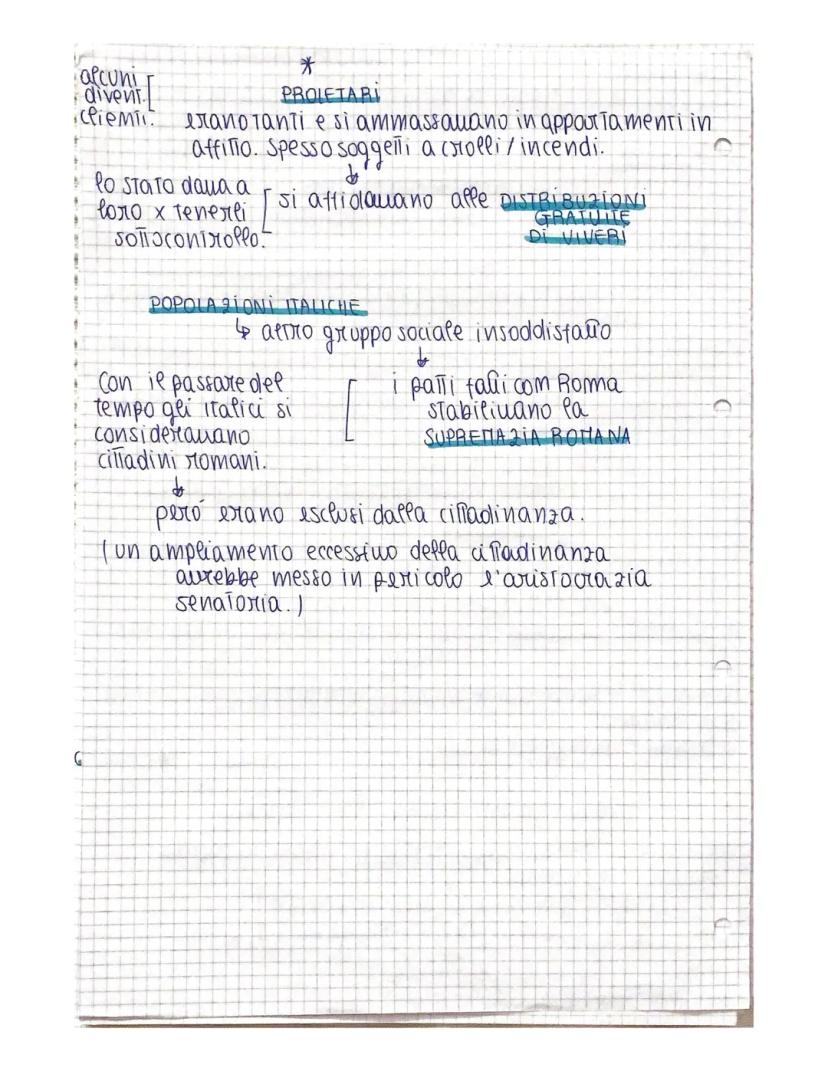 *
alcuni
divent.
clienti.
PROLETARI
erano tanti e si ammassavano in appartamenti in
affitto. Spesso soggetti a crolli / incendi.
↓
lo stato dava a
loro x tenerli
sotto controllo.
si affidavano alle DISTRIBUZIONI
GRATUITE
DI VIVERI
POPOLAZIONI ITALICHE
↳ altro gruppo sociale insoddisfatto
↓
Con il passare del
tempo gli italici si
consideravano
cittadini romani.
i patti fatti con Roma
stabilivano la
SUPREMAZIA ROMANA
↓
peró erano esclusi dalla cittadinanza.
(un ampliamento eccessivo della cittadinanza
avrebbe messo in pericolo l'aristocrazia
senatoria.)